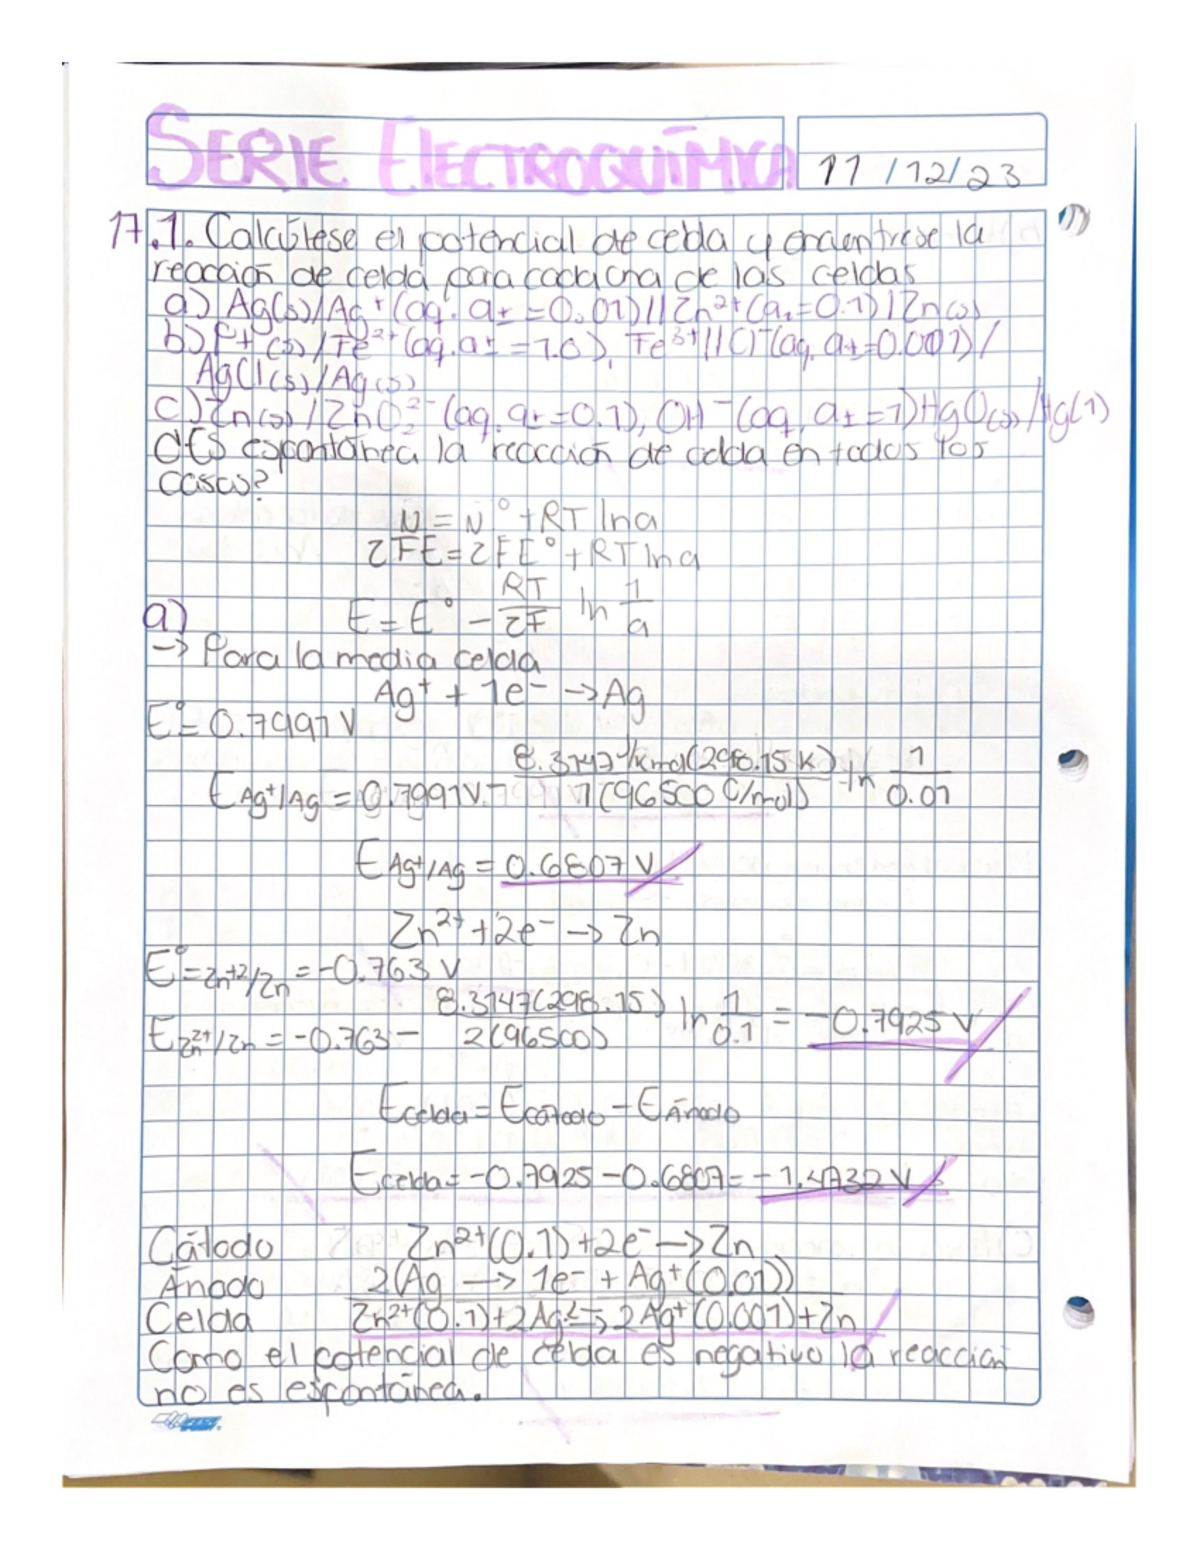 SERIE ELECTROQUÍMICA
11/12/23
17.1. Calcúlese el potencial de celda y encuentrese la
reacción de celda para cada una de las celdas
a) Ag(s)/Ag⁺(aq. a± = 0.01)//Zn²⁺(a± = 0.1)/Zn(s)
b) Pt(s)/Fe²⁺(aq. a± = 1.0), Fe³⁺//Cl⁻(aq. a± = 0.001)/
AgCl(s)/Ag(s)
c) Zn(s)/ZnO₂²⁻(aq. a± = 0.1), OH⁻(aq, a± = 1)HgO(s)/Hg(1)
¿Es espontánea la reacción de celda en todos los
casos?
N = N° + RT ln a
zFE = zFE° + RT ln a
a)
E = E° - RT/zF ln 1/a
→ Para la media celda
Ag⁺ + 1e⁻ → Ag
E° = 0.7991 V
E Ag⁺/Ag = 0.7991V - 8.3147 J/Kmol(298.15 K)/1(96500 C/mol) ln 1/0.01
E Ag⁺/Ag = 0.6807 V
Zn²⁺ + 2e⁻ → Zn
E° = Zn⁺²/Zn = -0.763 V
E Zn²⁺/Zn = -0.763 - 8.3147(298.15)/2(96500) ln 1/0.1 = -0.7925 V
Ecelda = Ecátodo - EÁnodo
Ecelda = -0.7925 - 0.6807 = -1.4732 V
Cátodo Zn²⁺(0.1) + 2e⁻ → Zn
Ánodo 2(Ag → 1e⁻ + Ag⁺(0.01))
Celda Zn²⁺(0.1) + 2Ag ⇌ 2Ag⁺(0.001) + Zn
Como el potencial de celda es negativo la reacción
no es espontánea.